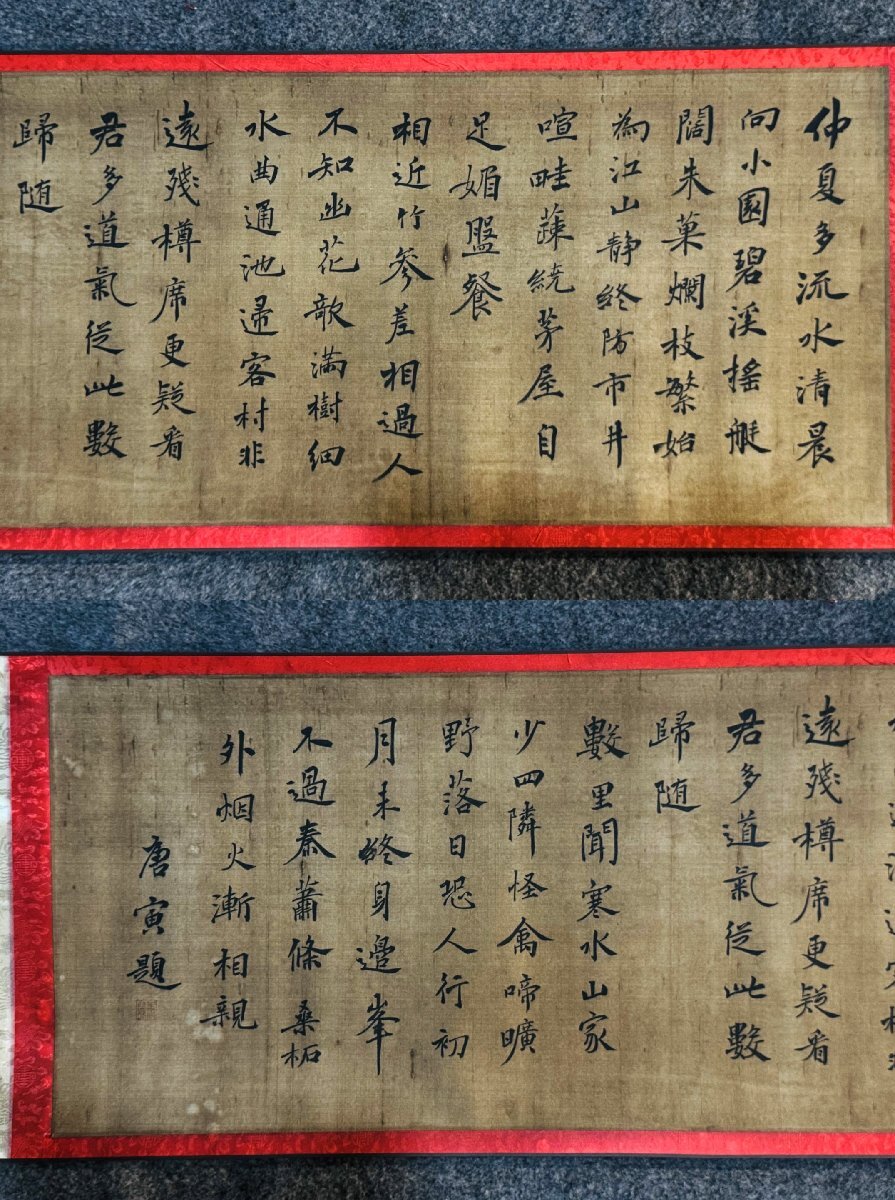 仲夏多流水清晨
向小園碧溪搖艇
闊朱菓爛枝繁始
為江山静終防市井
喧畦蔬繞茅屋自
足媚盤餐
相近竹參差相過人
不知幽花欹滿樹細
水曲通池歸客村非
遠殘樽席更疑看
君多道氣從此數
歸随
遠殘樽席更疑看
君多道氣從此數
歸随
數里聞寒水山家
少四隣怪禽啼曠
野落日恐人行初
月未終身邊峯
不過秦蕭條桑柘
外烟火漸相親
唐寅題